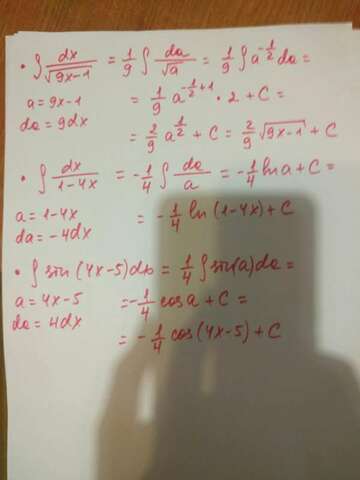 • ∫ dx/√(9x-1) = 1/9 ∫ da/√a = 1/9 ∫ a^(-1/2) da =
a = 9x-1 = 1/9 a^(-1/2+1) · 2 + C =
da = 9dx = 2/9 a^(1/2) + C = 2/9 √(9x-1) + C
• ∫ dx/(1-4x) = -1/4 ∫ da/a = -1/4 ln a + C =
a = 1-4x = -1/4 ln (1-4x) + C
da = -4dx
• ∫ sin (4x-5) dx = 1/4 ∫ sin(a) da =
a = 4x-5 = -1/4 cos a + C =
da = 4dx = -1/4 cos (4x-5) + C